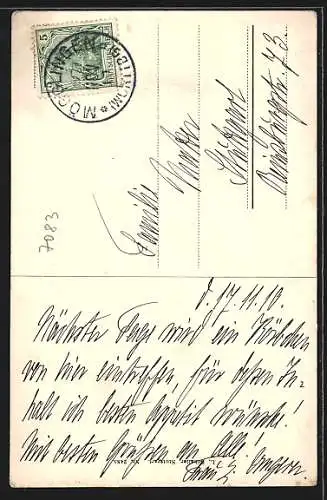 MÖGGLINGEN
5
Familie
Stuttgart
73.
7083
d. 17. 11. 10.
Nächster Tage wird ein Körbchen
von hier eintreffen, für dessen In-
halt ich besten Appetit wünsche!
Mit besten Grüßen an Alle!